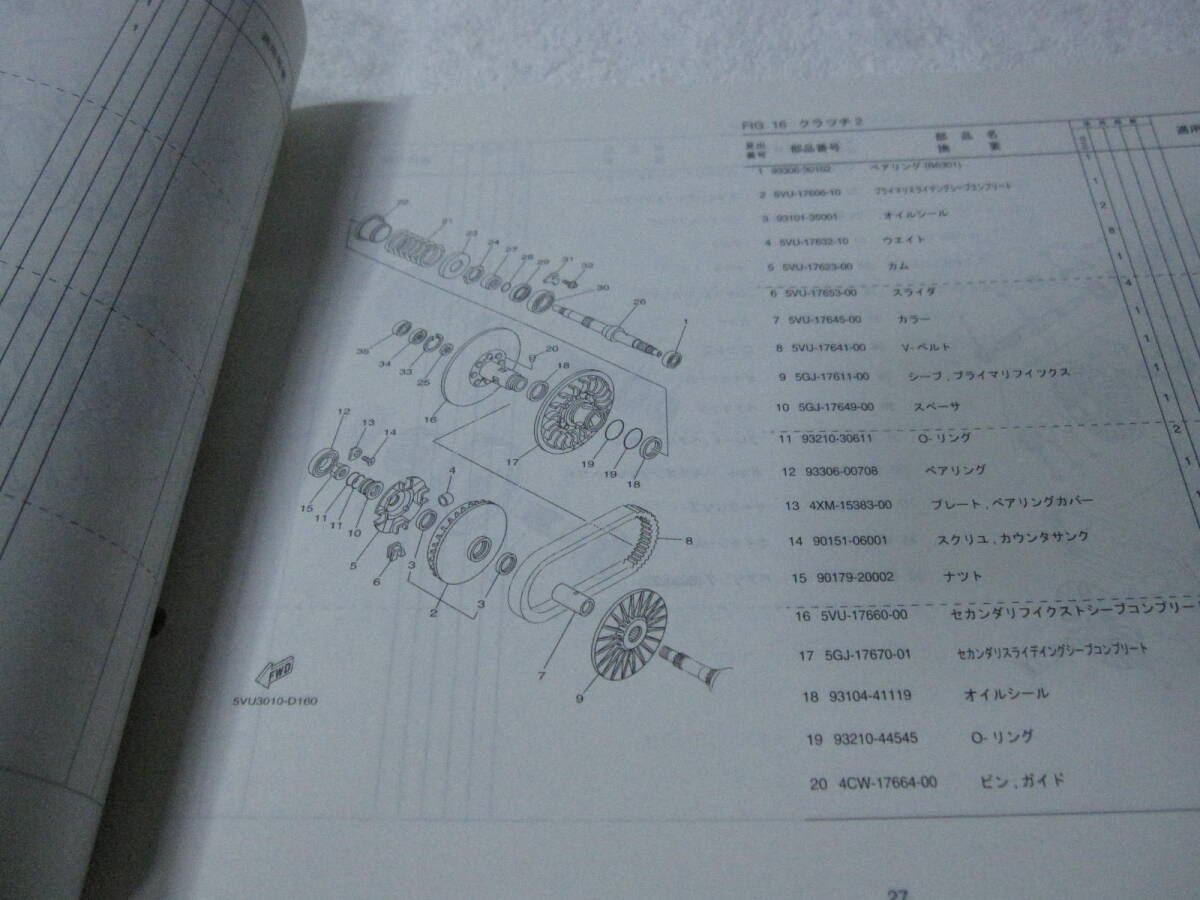 FIG. 16 クラッチ2
見出番号 部品番号 部品名 摘要
1 93306-30102 ベアリング (B6301) 1
2 5VU-17606-10 プライマリスライデングシーブコンプリート 1
3 93101-35001 オイルシール 2
4 5VU-17632-10 ウエイト 8
5 5VU-17623-00 カム 1
6 5VU-17653-00 スライダ 4
7 5VU-17645-00 カラー 1
8 5VU-17641-00 V-ベルト 1
9 5GJ-17611-00 シーブ,プライマリフイツクス 1
10 5GJ-17649-00 スペーサ 1
11 93210-30611 O-リング 2
12 93306-00708 ベアリング 1
13 4XM-15383-00 プレート,ベアリングカバー
14 90151-06001 スクリユ,カウンタサンク
15 90179-20002 ナツト
16 5VU-17660-00 セカンダリフイクストシーブコンプリート
17 5GJ-17670-01 セカンダリスライデイングシーブコンプリート
18 93104-41119 オイルシール
19 93210-44545 O-リング
20 4CW-17664-00 ピン,ガイド
22
21
23
24
27
28
29
31
32
30
26
1
35
34
33
25
20
18
16
17
19
19
18
12
13
14
15
11
11
10
5
6
4
3
2
3
8
7
9
FWD
5VU3010-D160
27